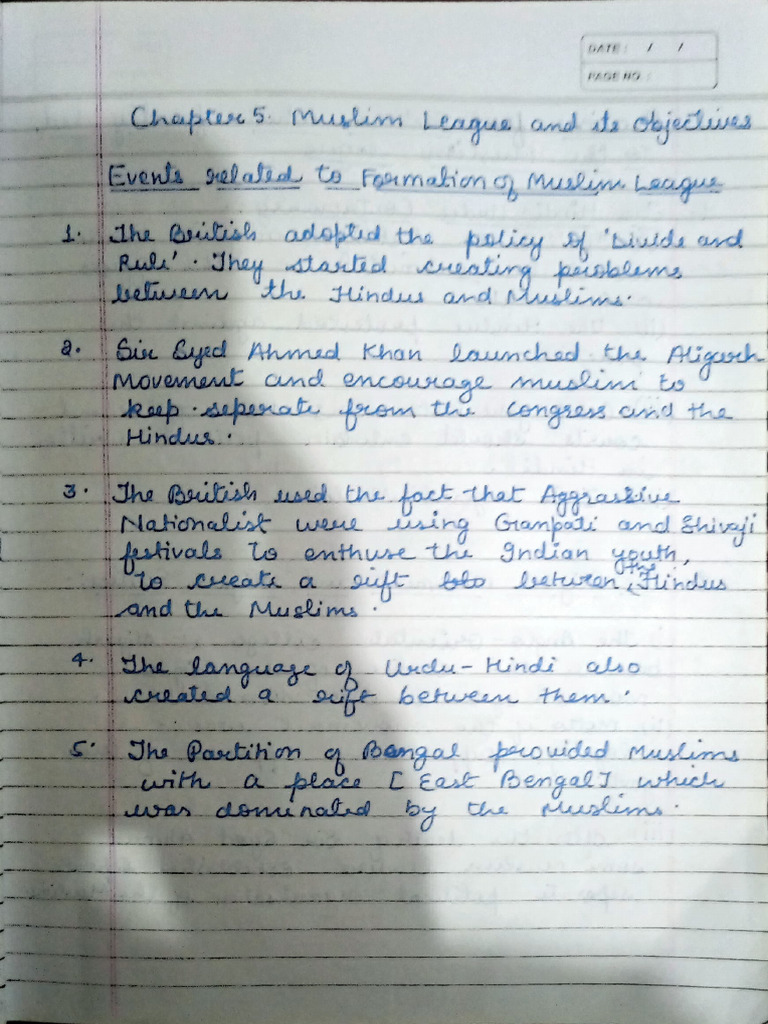 DATE: / /
PAGE NO.:
Chapter 5. Muslim League and its Objectives
Events related to Formation of Muslim League
1. The British adopted the policy of 'Divide and
Rule'. They started creating problems
between the Hindus and Muslims.
2. Sir Syed Ahmed Khan launched the Aligarh
Movement and encourage muslim to
keep seperate from the congress and the
Hindus.
3. The British used the fact that Aggrassive
Nationalist were using Ganpati and Shivaji
festivals to enthuse the Indian youth,
to create a rift between the Hindus
and the Muslims.
4. The language of Urdu-Hindi also
created a rift between them.
5. The Partition of Bengal provided Muslims
with a place [East Bengal] which
was dominated by the Muslims.